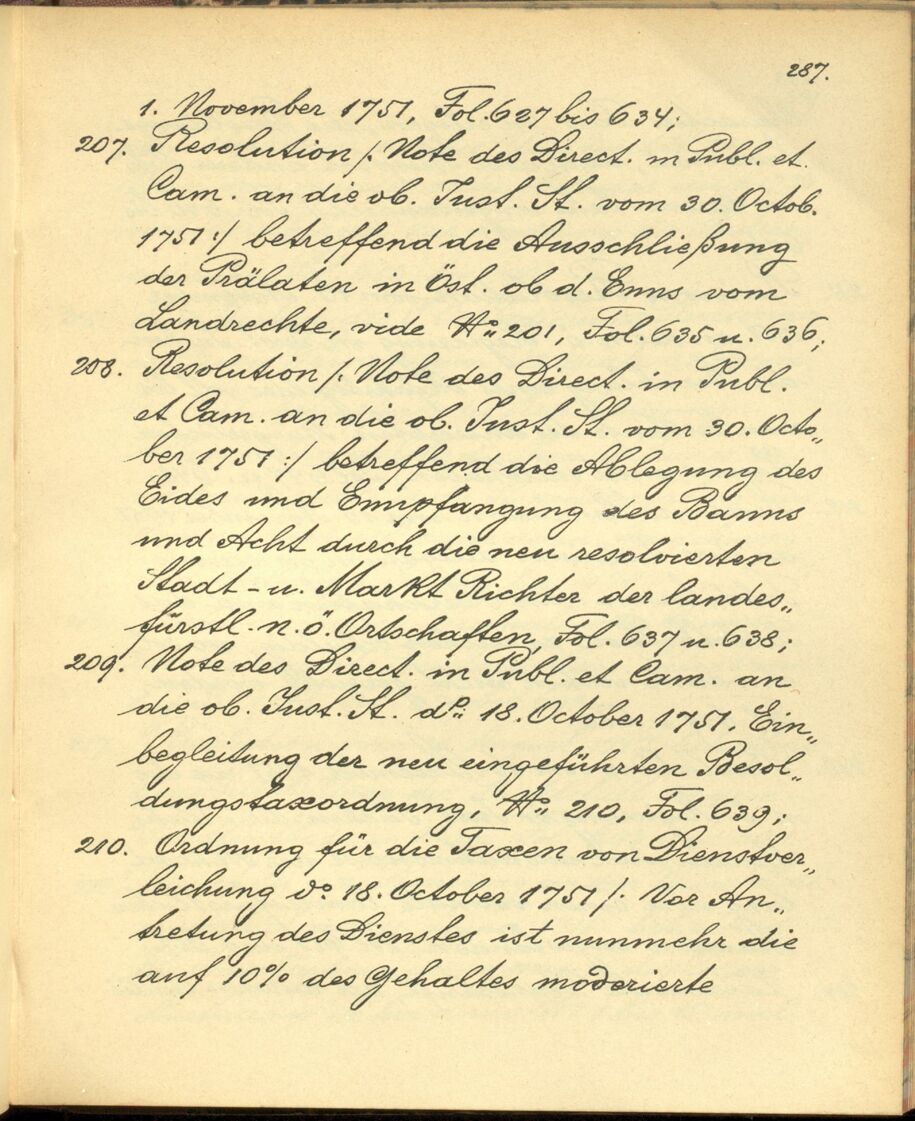 287.
1. November 1751, Fol. 627 bis 634;
207. Resolution /: Note des Direct. in Publ. et.
Cam. an die ob. Just. St. vom 30. Octob.
1751 :/ betreffend die Ausschließung
der Prälaten in Öst. ob d. Enns vom
Landrechte, vide No: 201, Fol. 635 u. 636;
208. Resolution /: Note des Direct. in Publ.
et Cam. an die ob. Just. St. vom 30. Octo„
ber 1751 :/ betreffend die Ablegung des
Eides und Empfangung des Banns
und Acht durch die neu resolvierten
Stadt- u. Markt Richter der landes„
fürstl. n. ö. Ortschaften, Fol. 637 u. 638;
209. Note des Direct. in Publ. et Cam. an
die ob. Just. St. do: 18. October 1751. Ein„
begleitung der neu eingeführten Besol„
dungstaxordnung, No: 210, Fol. 639;
210. Ordnung für die Taxen von Dienstver„
leichung do. 18. October 1751 /. Vor An„
tretung des Dienstes ist nunmehr die
auf 10% des Gehaltes moderierte